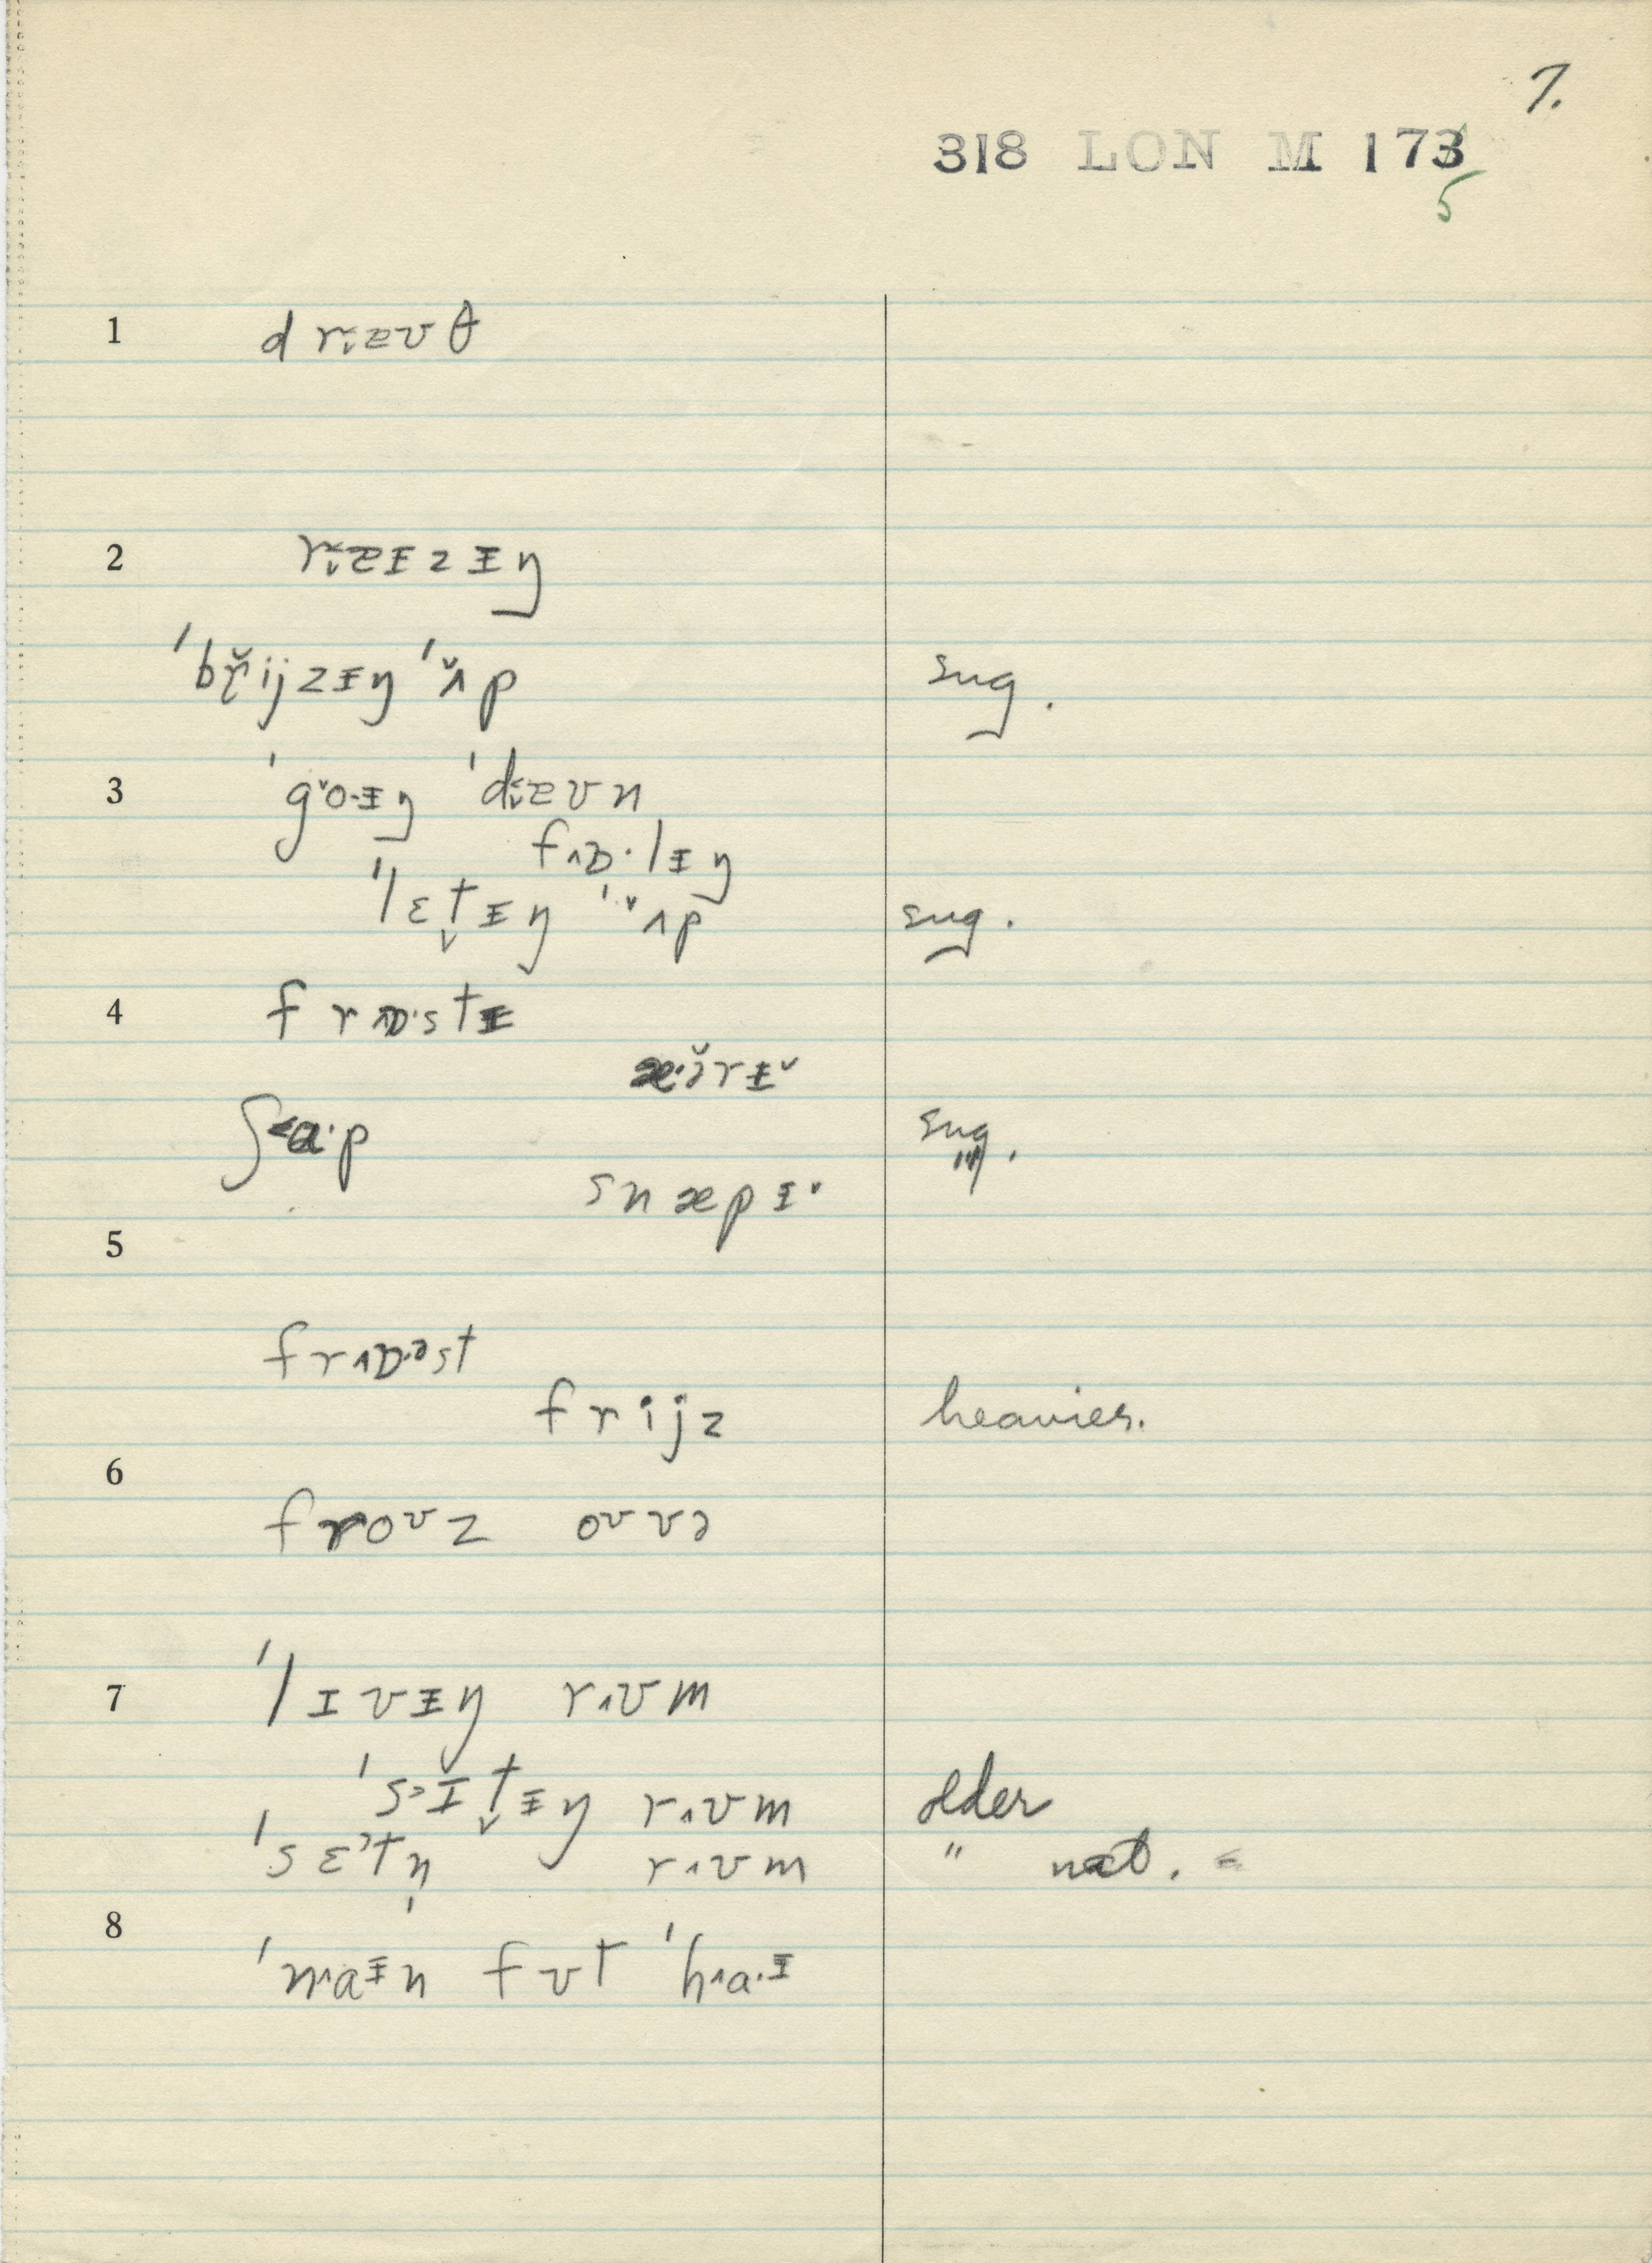 7.
318 LON M 173
5
1 d r æʊ θ
2 r æɪzɪŋ
ˈbr̬ijzɪŋ ˈʌp sug.
3 ˈgoɪŋ ˈdæʊn
fɒ·lɪŋ
ˈlɛt̬ɪŋ ˈʌp sug.
4 frɒ·stɪ
æ·ə̆rɪ˅
ʃɑ·p sug.
snæpɪ˅
5
frɒ·əst
frijz heavier.
6
froʊz oʊvə
7 ˈlɪvɪŋ rʌʊm
ˈsɪt̬ɪŋ rʌʊm older
ˈsɛtn̩ rʌʊm " nat. =
8
ˈnaɪn fʊt ˈhaɪ